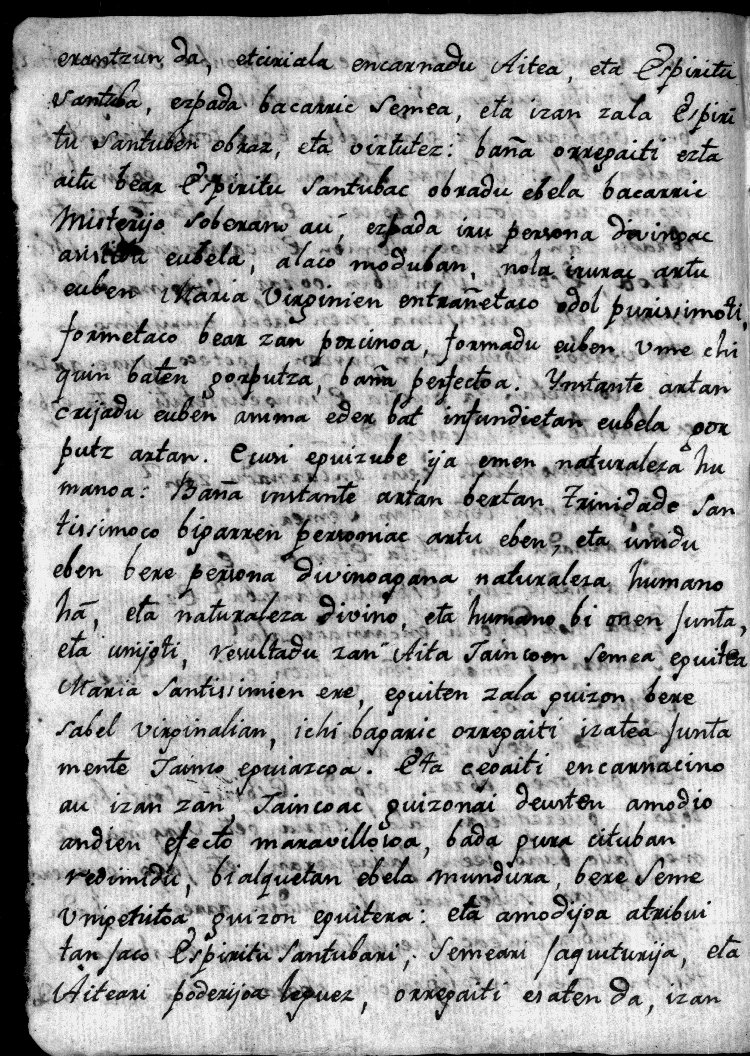 erantzun da, etciriala encarnadu Aitea, eta Espiritu
Santuba, ezpada bacarric Semea, eta izan zala Espiri
tu Santuben obraz, eta virtutez: baña orregaiti ezta
aitu bear Espiritu Santubac obradu ebela bacarric
Misterijo soberano au, ezpada iru persona divinoac
eubela, alaco moduban, nola irurac artu
euben Maria Virginien entrañetaco odol purissimoti,
formetaco bear zan porcinoa, formadu euben vme chi
quin baten gorputza, baña perfectoa. Ynstante artan
crijadu euben anima eder bat infundietan eubela gor
putz artan. Ecusi eguizube ija emen naturaleza hu
manoa: Baña instante artan bertan Trinidade San
tissimoco bigarren personiac artu eben, eta unidu
eben bere persona divinoagana naturaleza humano
hā, eta naturaleza divino, eta humano bi onen junta,
eta unijoti, resultadu zan Aita Jaincoen Semea eguitea
Maria Santissimien ere, eguiten zala guizon bere
sabel virginalian, ichi bagaric orregaiti izatea junta
mente Jainco eguiazcoa. Eta cegaiti encarnacino
au izan zan Jaincoac guizonai deusten amodio
andien efecto maravillosoa, bada gura cituban
redimidu, bialquetan ebela mundura, bere Seme
Vnigenitoa guizon eguitera: eta amodijoa atribui
tan jaco Espiritu Santubari, Semeari jaquiturija, eta
Aiteari poderijoa leguez, orregaiti esaten da, izan